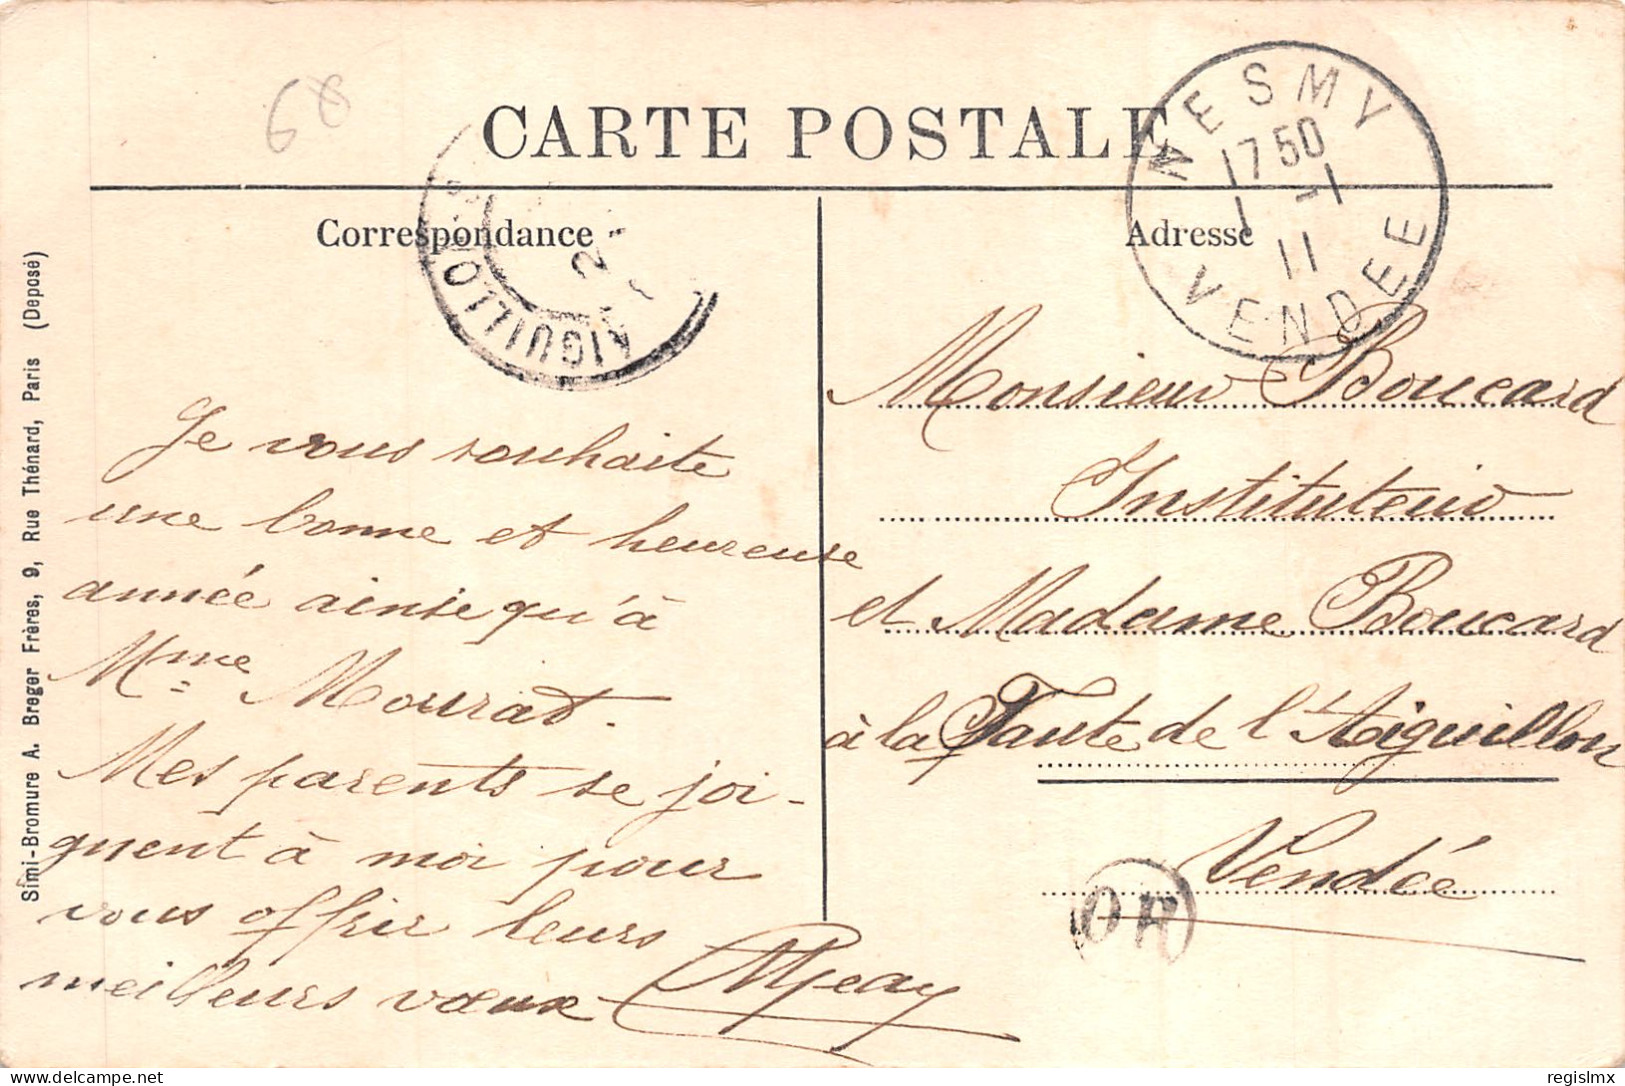 68
CARTE POSTALE
NESMY
17 50
1 - 1
11
VENDEE
Correspondance
Adresse
AIGUILLON-S
2
Je vous souhaite
une bonne et heureuse
année ainsi qu'à
Mme Mourat.
Mes parents se joi-
gnent à moi pour
vous offrir leurs
meilleurs vœux
Monsieur Boucard
Instituteur
et Madame Boucard
à la Faute de l'Aiguillon
Vendée
OR
Simi-Bromure A. Breger Frères, 9, Rue Thénard, Paris (Déposé)
delcampe.net
regislmx